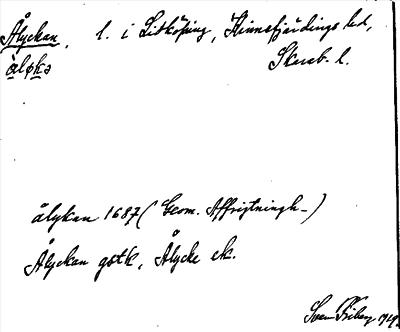 Ålyckan, l. i Lidköping, Kinnefjärdings hd,
àløka Skarab. l.
ålykan 1687 (Geom. Affrigtningh_)
Ålyckan gstk, Ålycke ek.
Sven Friberg